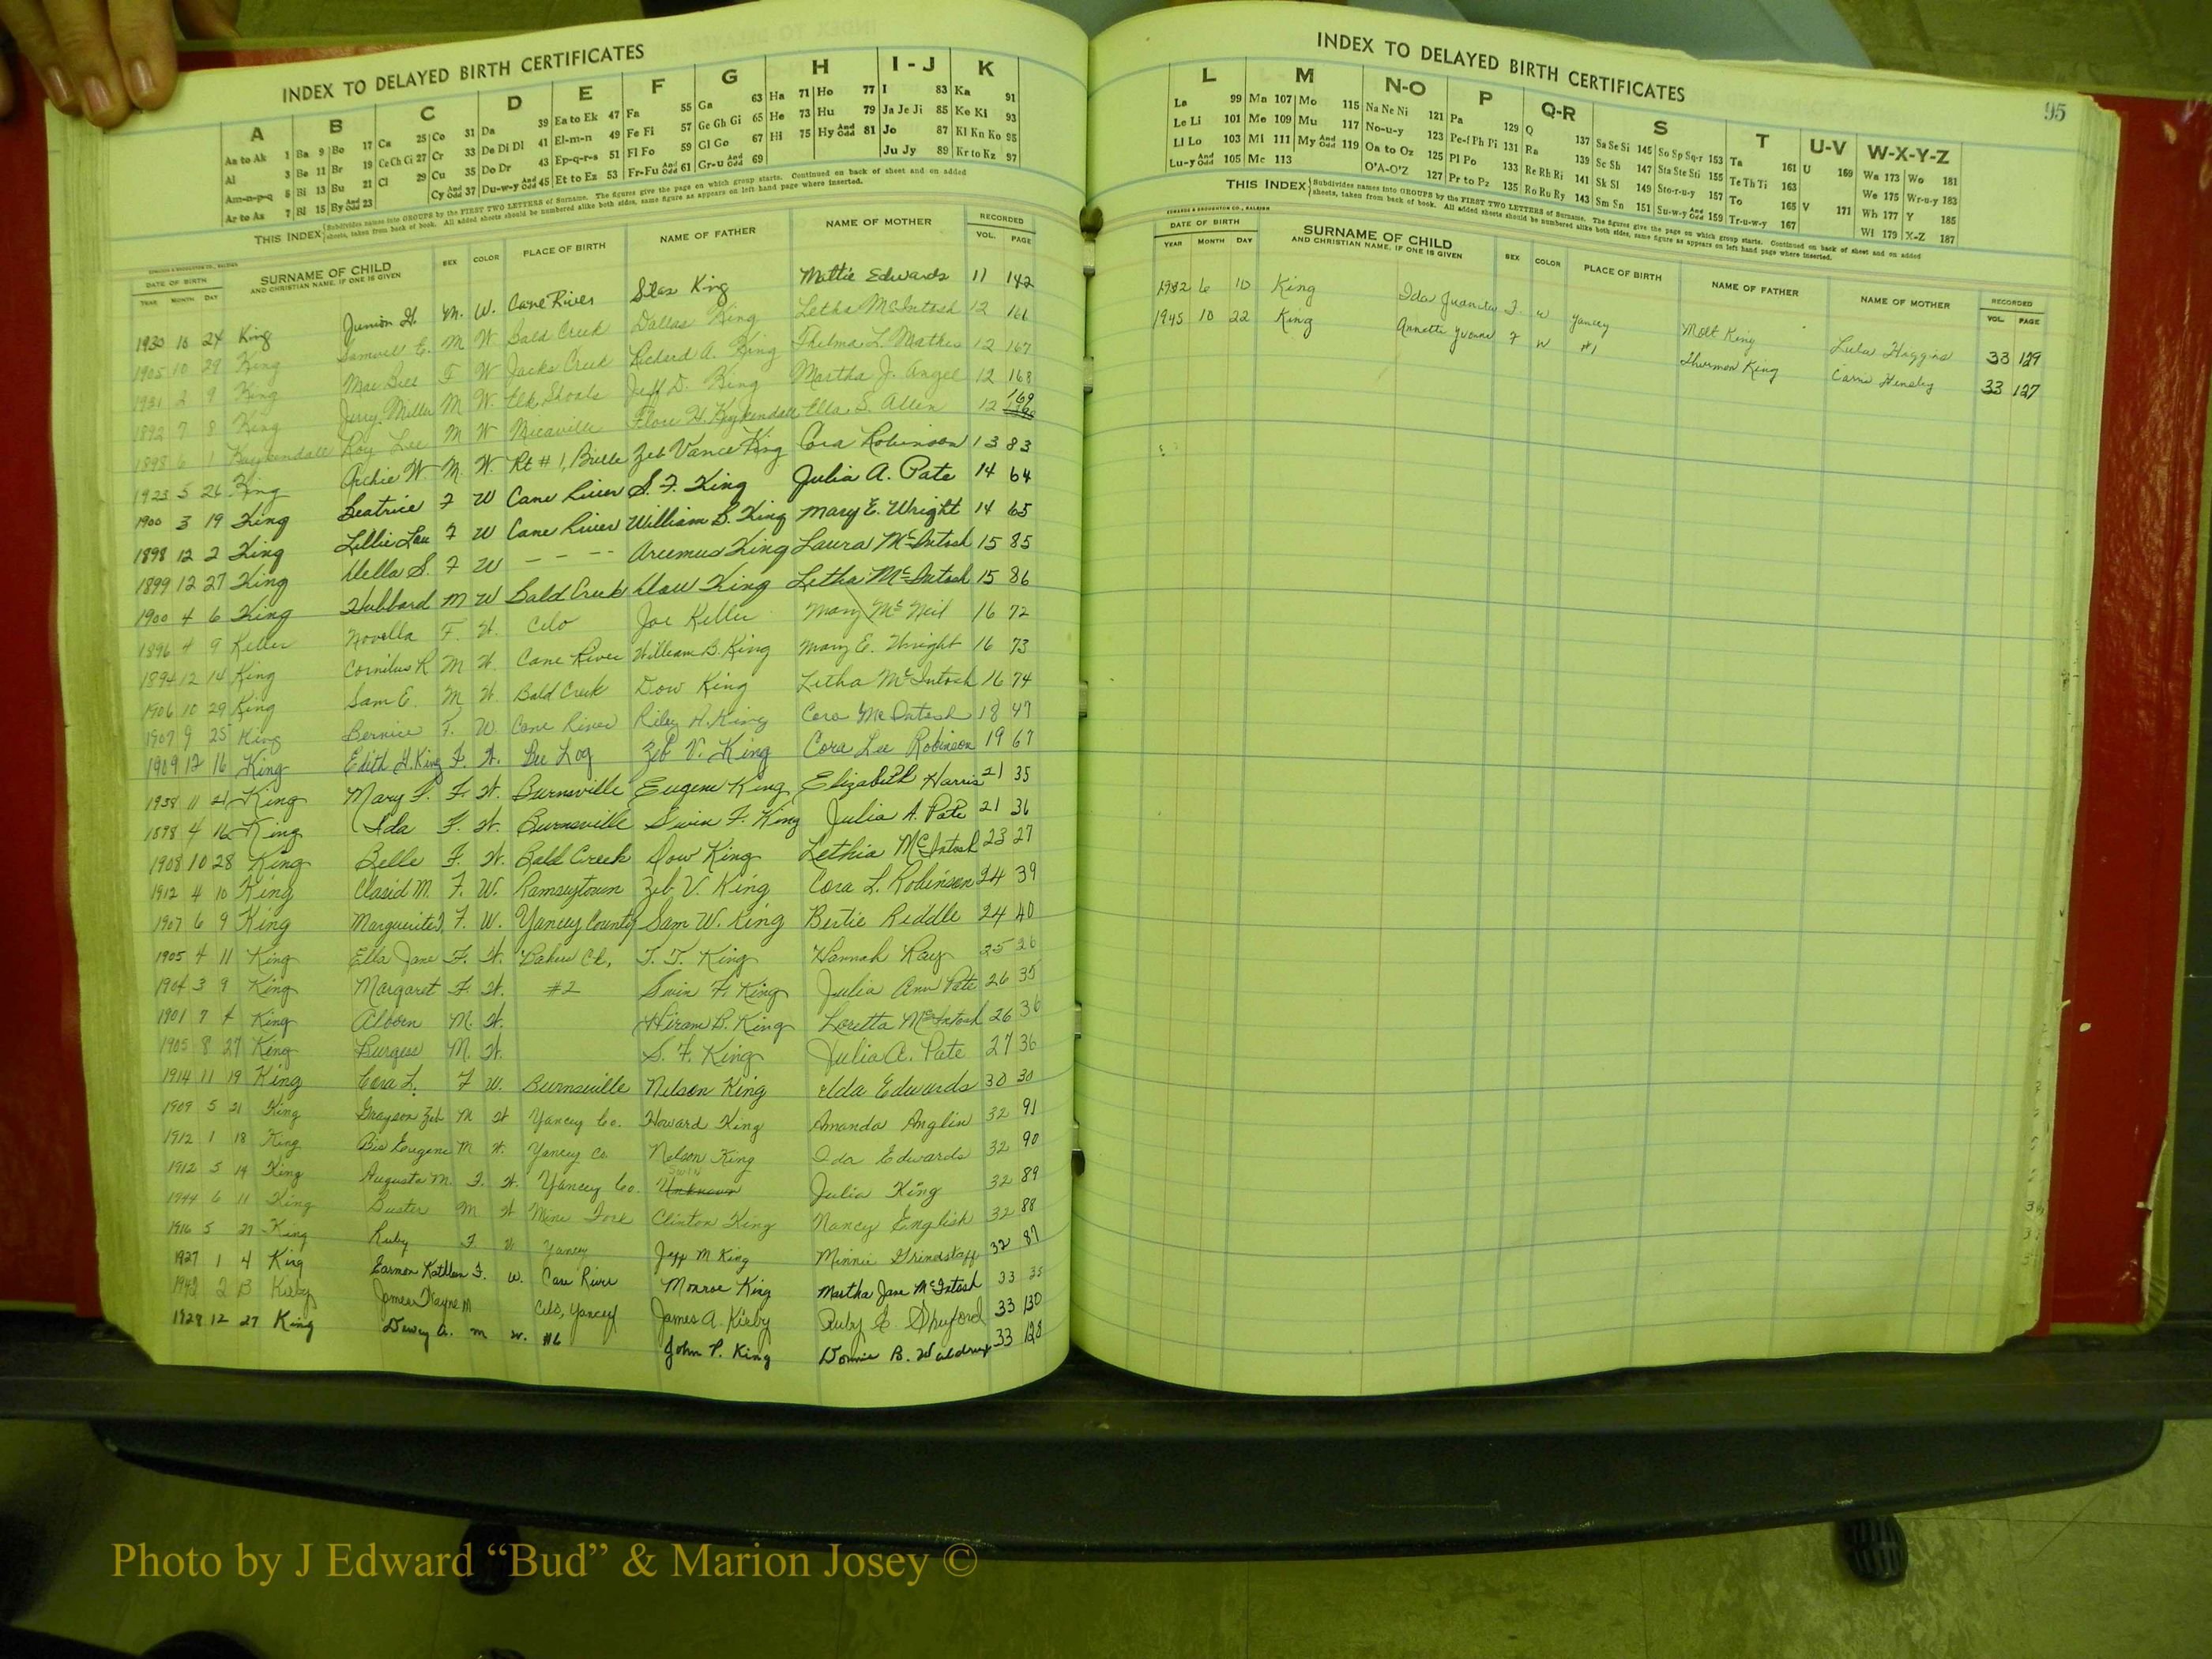 INDEX TO DELAYED BIRTH CERTIFICATES
A B C D E F G H I - J K
Aa to Ak 1 Ba 9 Bo 17 Ca 25 Co 31 Da 39 Ea to Ek 47 Fa 55 Ga 63 Ha 71 Ho 77 I 83 Ka 91
Al 3 Be 11 Br 19 Ce Ch Ci 27 Cr 33 De Di Dl 41 El-m-n 49 Fe Fi 57 Ge Gh Gi 65 He 73 Hu 79 Ja Je Ji 85 Ke Ki 93
Am-n-p-q 5 Bi 13 Bu 21 Cl 29 Cu 35 Do Dr 43 Ep-q-r-s 51 Fl Fo 59 Gl Go 67 Hi 75 Hy And Odd 81 Jo 87 Kl Kn Ko 95
Ar to Az 7 Bl 15 By And Odd 23 Cy And Odd 37 Du-w-y And Odd 45 Et to Ez 53 Fr-Fu And Odd 61 Gr-u And Odd 69 Ju Jy 89 Kr to Kz 97
THIS INDEX Subdivides names into GROUPS by the FIRST TWO LETTERS of Surname. The figures give the page on which group starts. Continued on back of sheet and on added
sheets, taken from back of book. All added sheets should be numbered alike both sides, same figure as appears on left hand page where inserted.
DATE OF BIRTH SURNAME OF CHILD SEX COLOR PLACE OF BIRTH NAME OF FATHER NAME OF MOTHER RECORDED
YEAR MONTH DAY AND CHRISTIAN NAME, IF ONE IS GIVEN VOL. PAGE
1930 10 24 King Junior H. M. W. Cane River Silas King Mattie Edwards 11 142
1905 10 29 King Samuel E. M W Bald Creek Dallas King Letha McIntosh 12 161
1931 2 9 King Mae Bell F W Jacks Creek Richard A. King Thelma L. Mathis 12 167
1892 7 8 King Jerry Miller M W. Elk Shoals Jeff D. King Martha J. Angel 12 168
1898 6 1 Kuykendall Roy Lee M W Micaville H. Kuykendall Ella S. Allen 12 169
1923 5 26 King Archie W. M. W. Rt #1, Zeb Vance King Cora Robinson 13 83
1900 3 19 King Beatrice F W Cane River S. F. King Julia A. Pate 14 64
1898 12 2 King Lillie Lou F W Cane River William B. King Mary E. Wright 14 65
1899 12 27 King Della S. F W - - - King Laura McIntosh 15 85
1900 4 6 King Hubbard M W Bald Creek Dow King Letha McIntosh 15 86
1896 4 9 Keller Novella F. W. Celo Joe Keller Mary McNeil 16 72
1894 12 14 King Cornilus R M W. Cane River William B. King Mary E. Wright 16 73
1906 10 29 King Sam E. M W. Bald Creek Dow King Letha McIntosh 16 74
1907 9 25 King Bernice F. W. Cane River Riley H. King Cora McIntosh 18 47
1909 12 16 King Edith H. King F. W. Bee Log Zeb V. King Cora Lee Robinson 19 67
1938 11 21 King Mary F. F. W. Burnsville Eugene King Elizabeth Harris 21 35
1898 4 16 King Ida F. W. Burnsville Swin F. King Julia A. Pate 21 36
1908 10 28 King Belle F. W. Bald Creek Dow King Lethia McIntosh 23 27
1912 4 10 King M. F. W. Ramseytown Zeb V. King Cora L. Robinson 24 39
1907 6 9 King F. W. Yancey County Sam W. King Bertie Riddle 24 40
1905 4 11 King Ella Jane F. W. T. T. King Hannah Ray 25 26
1904 3 9 King Margaret F. W. #2 Swin F. King Julia Ann Pate 26 35
1901 7 4 King M. W. Hiram B. King Loretta McIntosh 26 36
1905 8 27 King Burgess M. W. S. F. King Julia A. Pate 27 36
1914 11 19 King Cora L. F W. Burnsville Nelson King Ida Edwards 30 30
1909 5 21 King Grayson Zeb M W Yancey Co. Howard King Amanda Anglin 32 91
1912 1 18 King Eugene M W. Yancey Co. Nelson King Ida Edwards 32 90
1912 5 14 King Augusta M. F. W. Yancey Co. Swin Unknown Julia King 32 89
1944 6 11 King Buster M W Mine Fork Clinton King Nancy English 32 88
1916 5 29 King Ruby F W Yancey Jeff M King Minnie Grindstaff 32 87
1927 1 4 King Kathleen F. W. Cane River Monroe King Martha Jane McIntosh 33 35
1942 2 13 Kirby James Wayne M Celo, Yancey James A. Kirby Ruby E. Shuford 33 130
1928 12 27 King Dewey A. M W. #6 John P. King B. 33 128
INDEX TO DELAYED BIRTH CERTIFICATES 95
L M N-O P Q-R S T U-V W-X-Y-Z
La 99 Ma 107 Mo 115 Na Ne Ni 121 Pa 129 Q 137 Sa Se Si 145 So Sp Sq-r 153 Ta 161 U 169 Wa 173 Wo 181
Le Li 101 Me 109 Mu 117 No-u-y 123 Pe-f Ph Pi 131 Ra 139 Sc Sh 147 Sta Ste Sti 155 Te Th Ti 163 We 175 Wr-u-y 183
Ll Lo 103 Mi 111 My And Odd 119 Oa to Oz 125 Pl Po 133 Re Rh Ri 141 Sk Sl 149 Sto-r-u-y 157 To 165 V 171 Wh 177 Y 185
Lu-y And Odd 105 Mc 113 O'A-O'Z 127 Pr to Pz 135 Ro Ru Ry 143 Sm Sn 151 Su-w-y And Odd 159 Tr-u-w-y 167 Wi 179 X-Z 187
THIS INDEX Subdivides names into GROUPS by the FIRST TWO LETTERS of Surname. The figures give the page on which group starts. Continued on back of sheet and on added
sheets, taken from back of book. All added sheets should be numbered alike both sides, same figure as appears on left hand page where inserted.
EDWARDS & BROUGHTON CO., RALEIGH
DATE OF BIRTH SURNAME OF CHILD SEX COLOR PLACE OF BIRTH NAME OF FATHER NAME OF MOTHER RECORDED
YEAR MONTH DAY AND CHRISTIAN NAME, IF ONE IS GIVEN VOL. PAGE
1932 6 10 King Ida Juanita F. W Yancey Molt King Lula Higgins 33 129
1945 10 22 King Annette Yvonne F W #1 Thurman King Carrie Hensley 33 127
Photo by J Edward “Bud” & Marion Josey ©